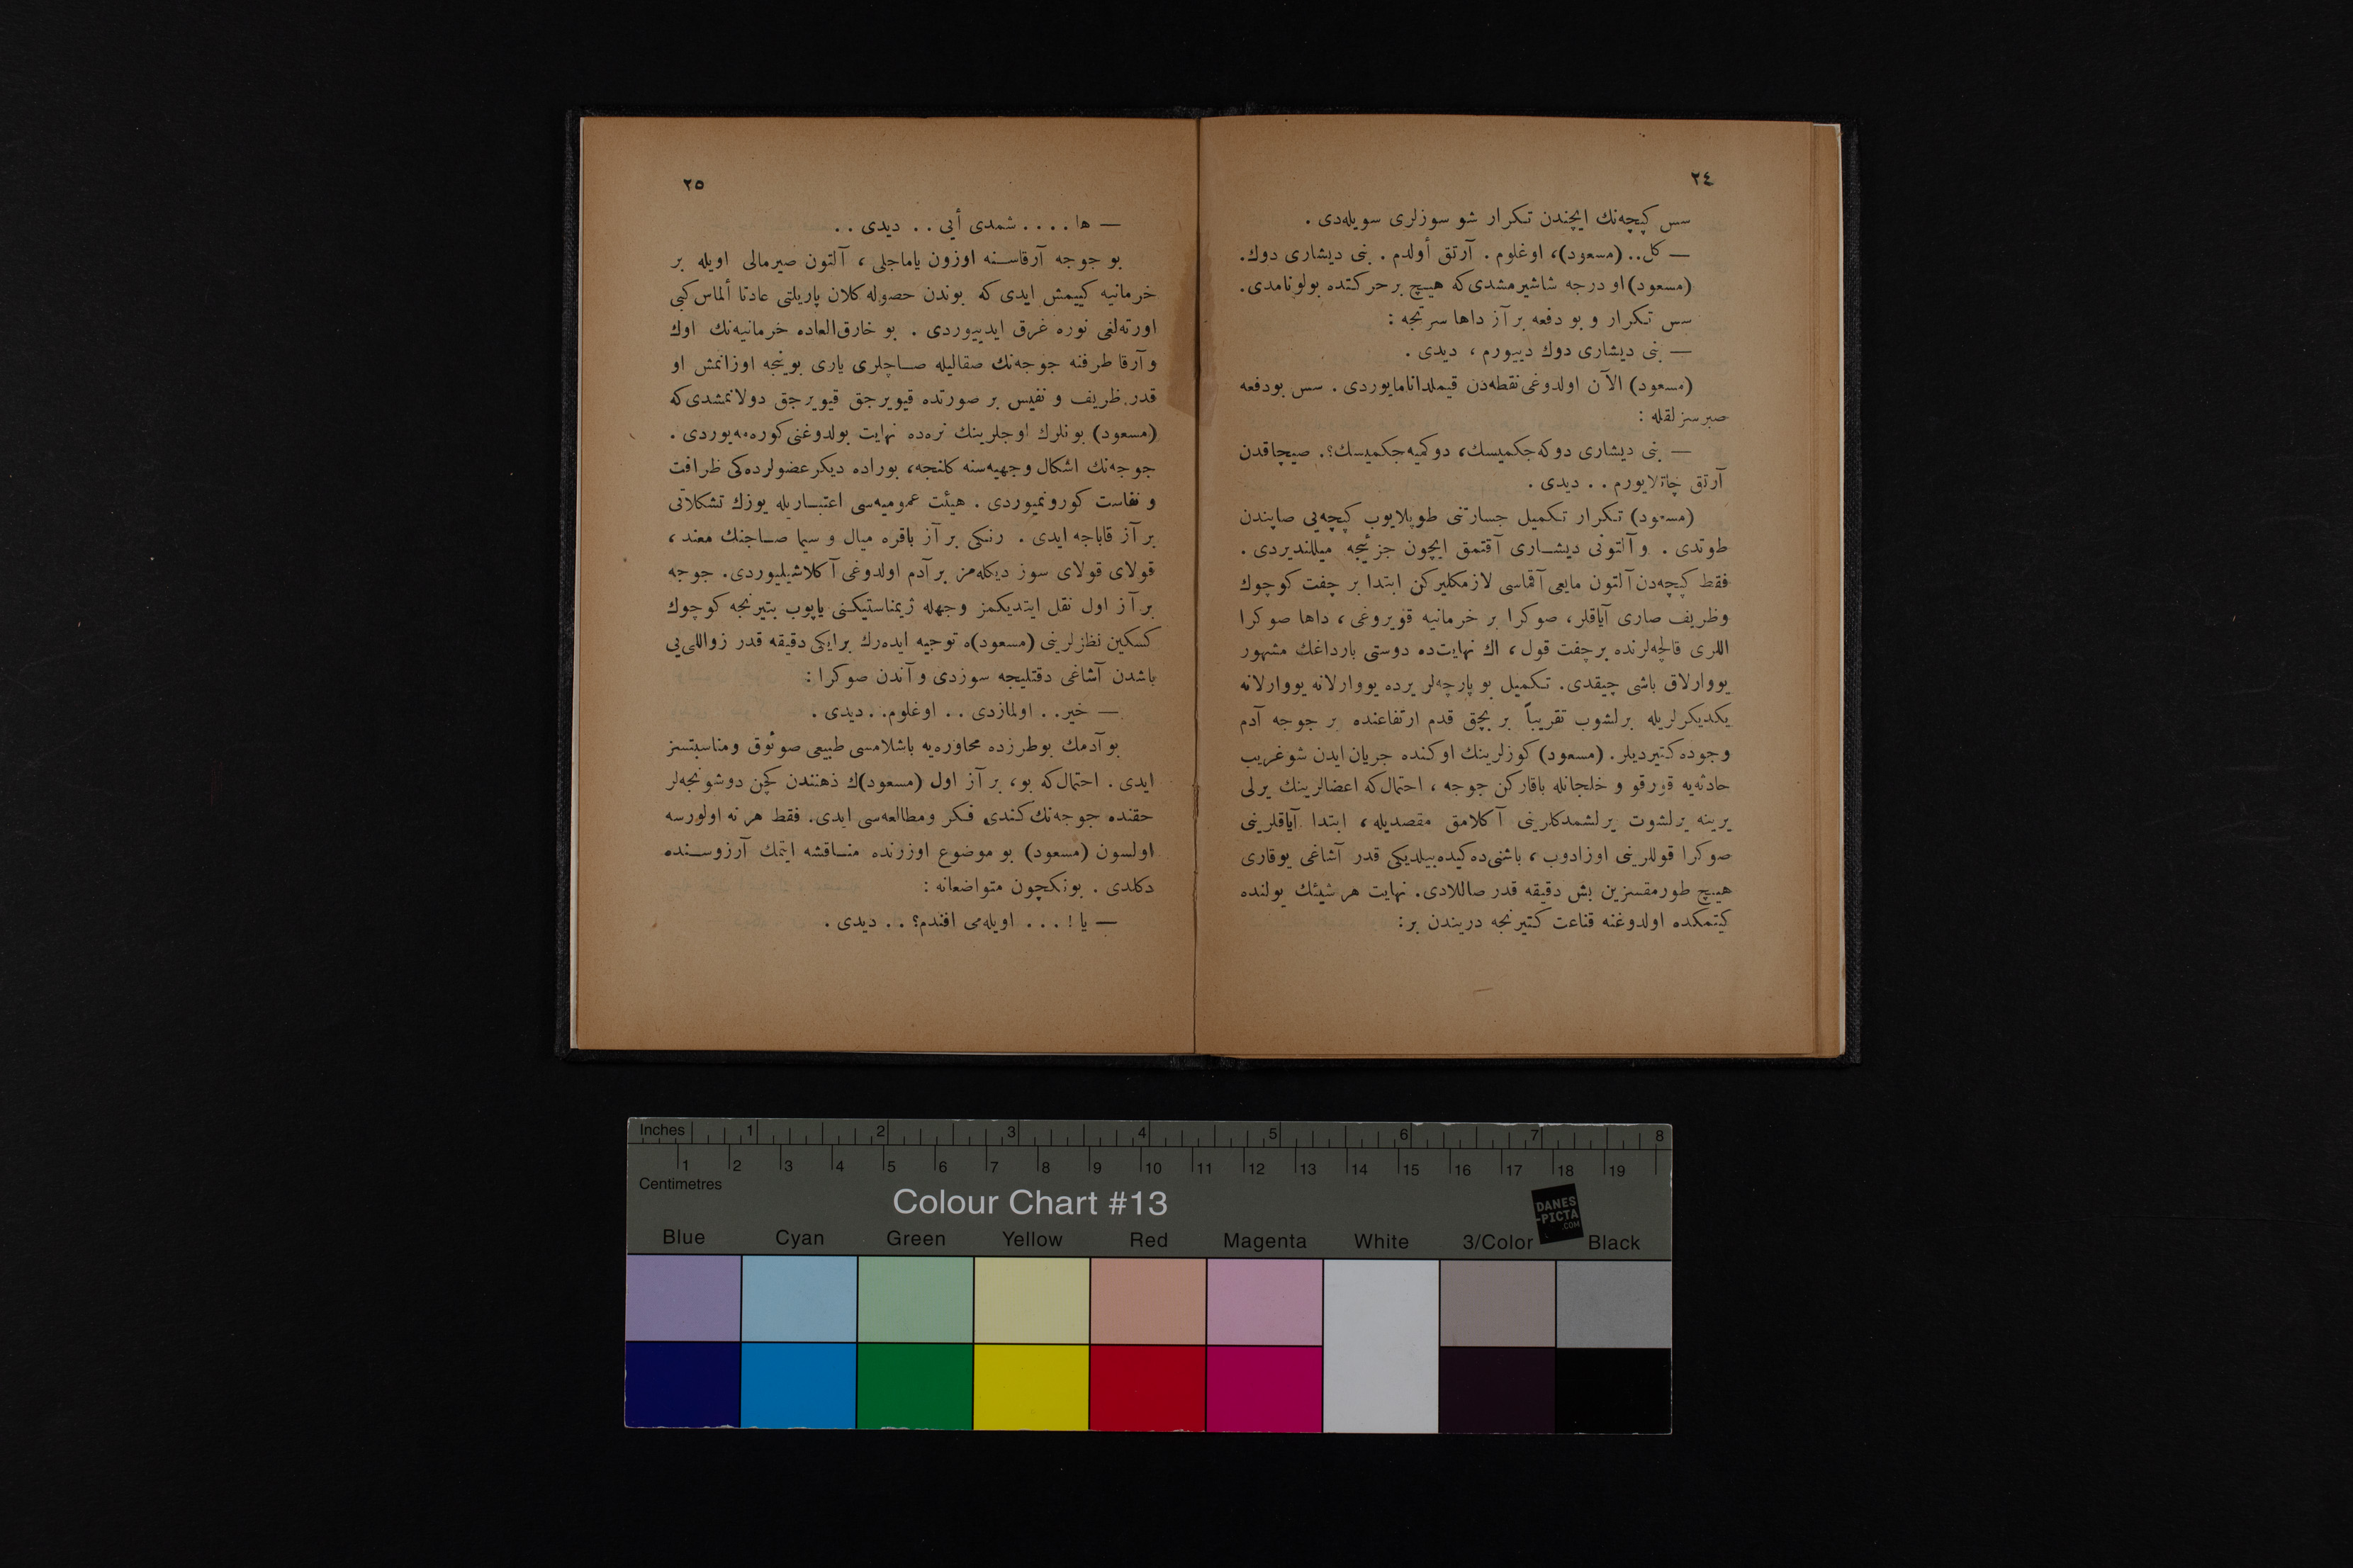 ٢٤
سس كپچه‌نك ایچندن تكرار شو سوزلری سویله‌دی .
— كل.. (مسعود)، اوغلوم . آرتق أولدم . بنی دیشاری دوك.
(مسعود) او درجه شاشیرمشدی‌كه هیچ بر حركتده بولونامدی.
سس تكرار و بو دفعه بر آز داها سرتجه :
— بنی دیشاری دوك دییورم ، دیدی .
(مسعود) الآن اولدوغی نقطه‌دن قیملدانامایوردی . سس بودفعه
صبرسزلقله :
— بنی دیشاری دوكه‌جكمیسك، دوكمیه‌جكمیسك؟. صیجاقدن
آرتق چاتلایورم . . دیدی .
(مسعود) تكرار تكمیل جسارتنی طوپلایوب كپچه‌یی صاپندن
طوتدی . و آلتونی دیشاری آقتمق ایچون جزئیجه میللندیردی .
فقط كپچه‌دن آلتون مایعی آقماسی لازمكلیركن ابتدا بر چفت كوچوك
وظریف صاری آیاقلر، صوكرا بر خرمانیه قویروغی، داها صوكرا
اللری قالچه‌لرنده بر چفت قول، اك نهایت‌ده دوستی بارداغك مشهور
یووارلاق باشی چیقدی. تكمیل بو پارچه‌لر یرده یووارلانه یووارلانه
یكدیكرلریله برلشوب تقریباً بر بچق قدم ارتفاعنده بر جوجه آدم
وجوده كتیردیلر. (مسعود) كوزلرینك اوكنده جریان ایدن شو غریب
حادثه‌یه قورقو و خلجانله باقاركن جوجه ، احتمال‌كه اعضالرینك یرلی
یرینه یرلشوت یرلشمدكلرینی آكلامق مقصدیله، ابتدا آیاقلرینی
صوكرا قوللرینی اوزادوب، باشنی‌ده كیده‌بیلدیكی قدر آشاغی یوقاری
هیچ طورمقسزین بش دقیقه قدر صاللادی. نهایت هر شیئك یولنده
كیتمكده اولدوغنه قناعت كتیرنجه دریندن بر:
٢٥
— ها . . . . شمدی أیی . . دیدی . .
بو جوجه آرقاسنه اوزون یاماجلی ، آلتون صیرمالی اویله بر
خرمانیه كییمش ایدی كه بوندن حصوله كلان پاریلتی عادتا ألماس كبی
اورته‌لغی نوره غرق ایدییوردی . بو خارق‌العاده خرمانیه‌نك اوك
و آرقا طرفنه جوجه‌نك صقالیله صاچلری یاری بوینجه اوزانمش او
قدر ظریف و نفیس بر صورتده قیویرجق قیویرجق دولانمشدی كه
(مسعود) بونلرك اوجلرینك نره‌ده نهایت بولدوغنی كوره‌مه‌یوردی .
جوجه‌نك اشكال وجهیه‌سنه كلنجه، بوراده دیكر عضولرده‌كی ظرافت
و نفاست كورونمیوردی . هیئت عمومیه‌سی اعتباریله یوزك تشكلاتی
بر آز قاباجه ایدی . رنكی بر آز باقره میال و سیما صاجنك معند ،
قولای قولای سوز دیكله‌مز بر آدم اولدوغی آكلاشیلیوردی. جوجه
بر آز اول نقل ایتدیكمز وجهله ژیمناستیكنی یاپوب بتیرنجه كوچوك
كسكین نظرلرینی (مسعود)ه توجیه ایده‌رك بر ایكی دقیقه قدر زواللی‌یی
باشدن آشاغی دقتلیجه سوزدی و آندن صوكرا :
— خیر. . اولمازدی . . اوغلوم. . دیدی .
بو آدمك بو طرزده محاوره‌یه باشلامسی طبیعی صوئوق ومناسبتسز
ایدی . احتمال كه بو، بر آز اول (مسعود)ك ذهنندن كچن دوشونجه‌لر
حقنده جوجه‌نك كندی فكر ومطالعه‌سی ایدی. فقط هر نه اولورسه
اولسون (مسعود) بو موضوع اوزرنده مناقشه ایتمك آرزوسنده
دكلدی . بونكچون متواضعانه :
— یا ! . . . اویله‌می افندم؟ . . دیدی .
Inches 1 2 3 4 5 6 7 8
1 2 3 4 5 6 7 8 9 10 11 12 13 14 15 16 17 18 19
Centimetres
Colour Chart #13
DANES
-PICTA
.COM
Blue Cyan Green Yellow Red Magenta White 3/Color Black